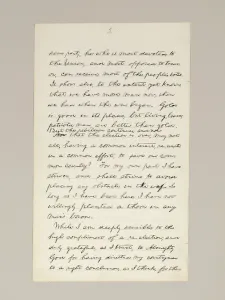 3
same party, he who is most devoted to
the Union, and most opposed to treason,
can receive most of the people's votes.
It shows also, to the extent yet known,
that we have more men now, than
we had when the war began. Gold
is good in its place; but living, brave,
patriotic men, are better than gold.
But the rebellion continues; and
now that the election is over, may not
all, having a common interest, re-unite
in a common effort, to save our com-
mon country? For my own part I have
striven, and shall strive to avoid
placing any obstacle in the way. So
long as I have been here I have not
willingly planted a thorn in any
man's bosom.
While I am deeply sensible to the
high compliment of a re-election; and
duly grateful, as I trust, to Almighty
God for having directed my countrymen
to a right conclusion, as I think, for their